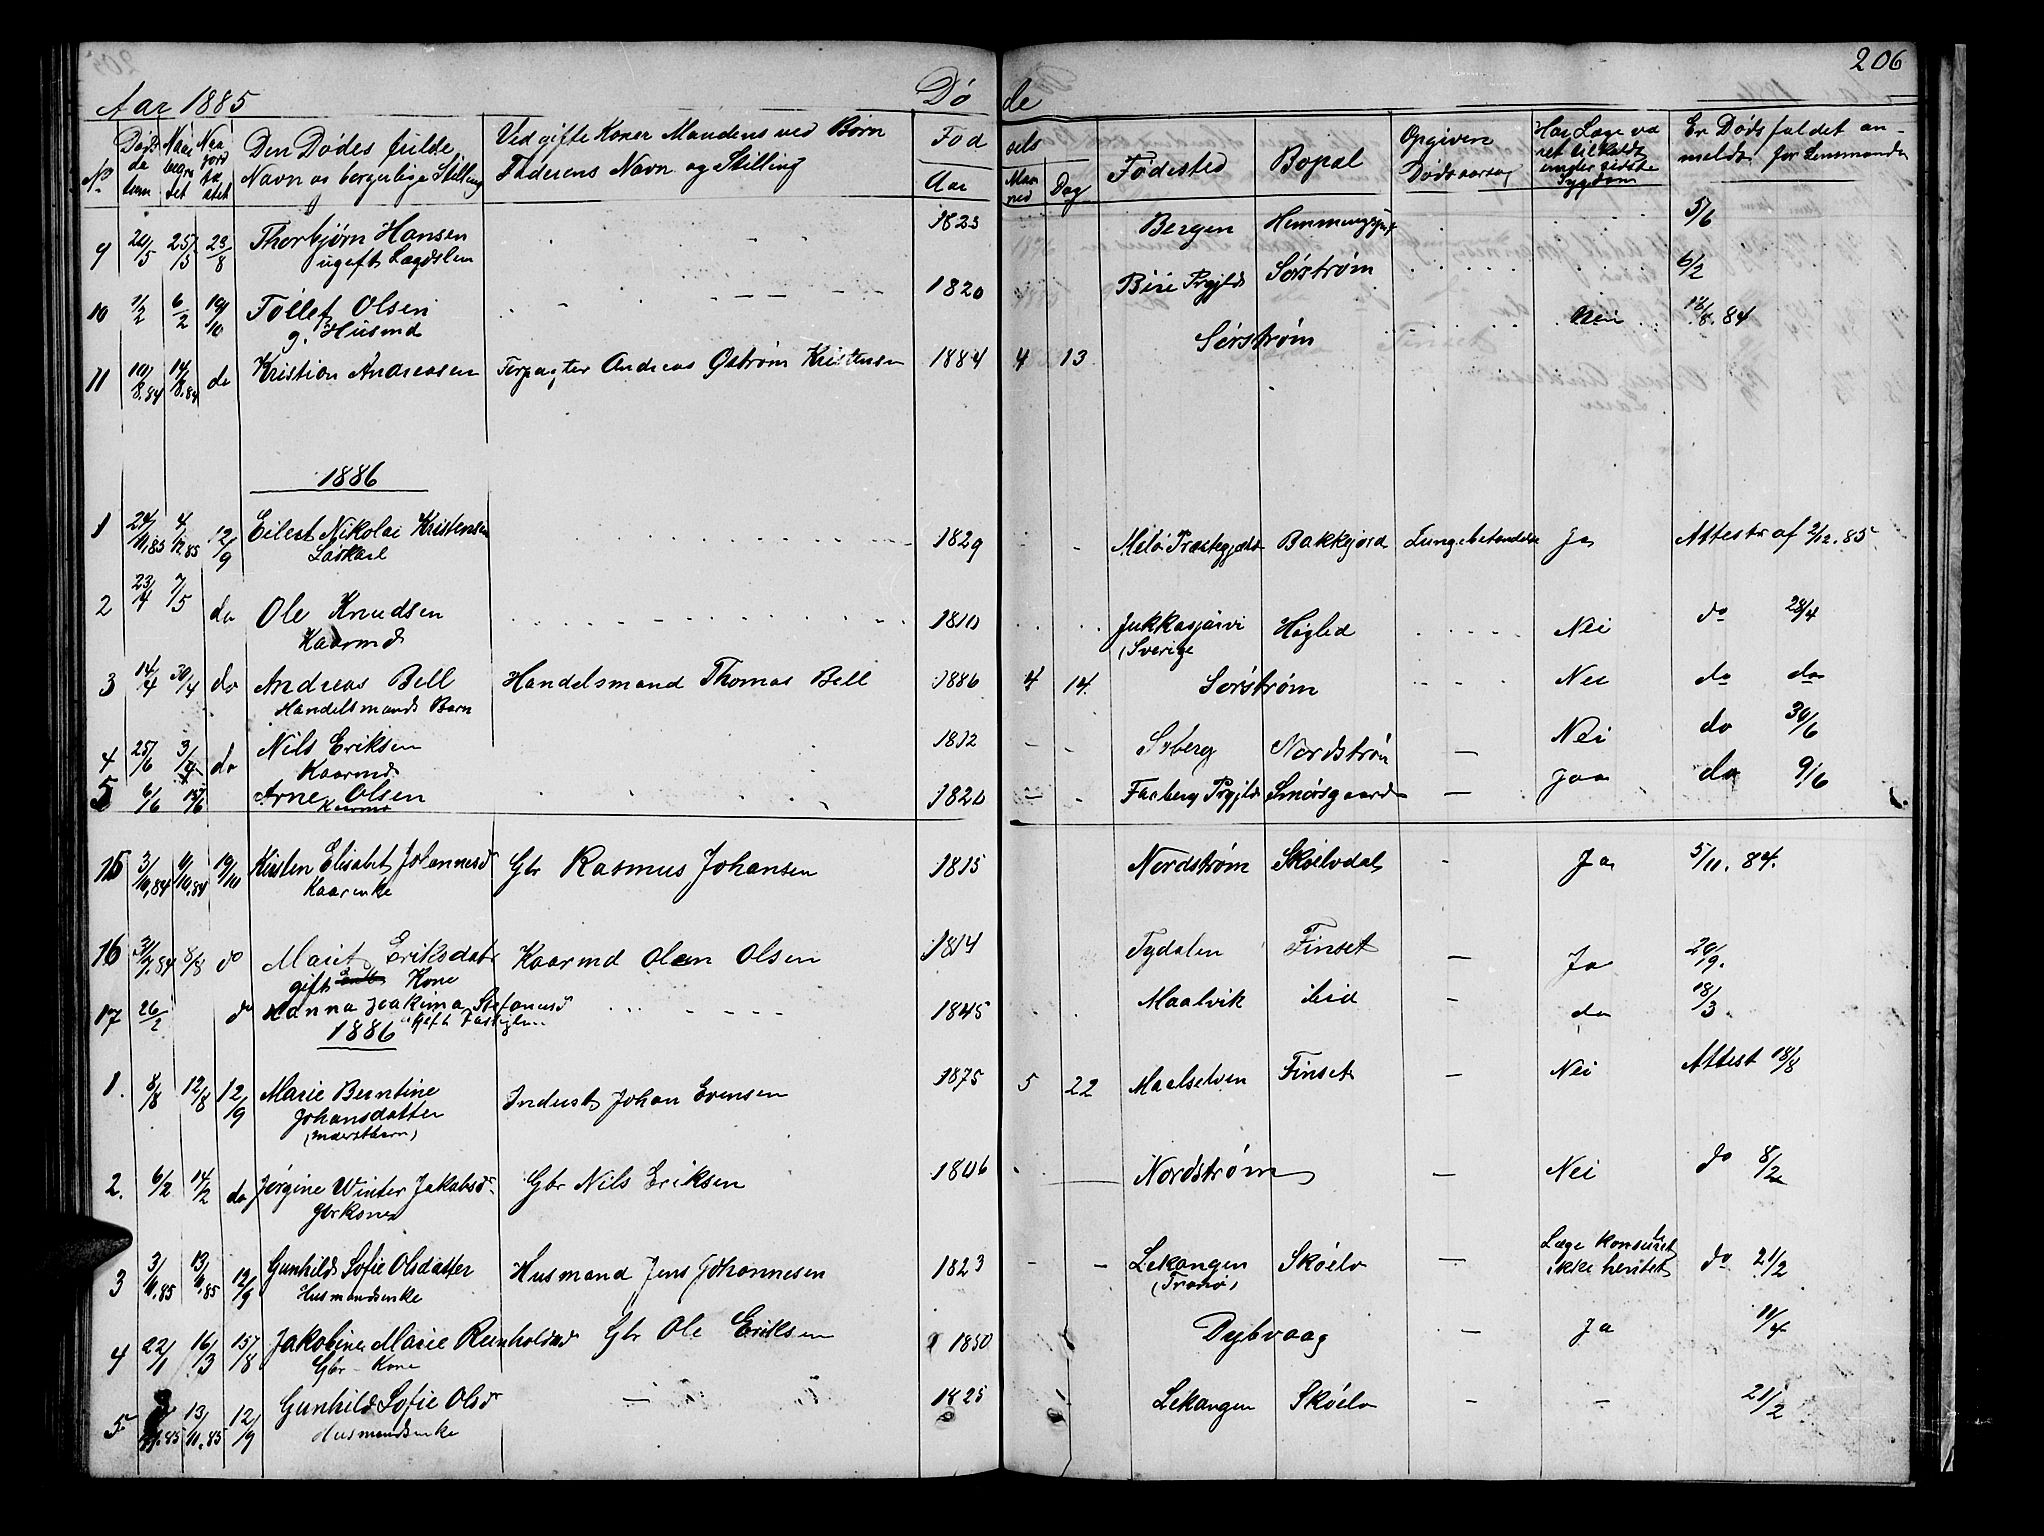 206
Aar 1885 Døde
No Begravet Den Dødes fulde Navn og borgerlige Stilling Ved gifte Koner Mandens ved Børn Faderens Navn og Stilling Fødselsaar Maaned Dag Fødested Bopæl Opgiven Dødsaarsag Har Læge været tilkaldt under sidste Sygdom Er Dødsfaldet anmeldt for Lensmanden
9 25/5 23/8 Thorbjørn Hansen 1823 Bergen 5/6
ugift Lægdslem
10 6/2 19/10 Tollef Olsen 1820 Prgjld Sørstrøm 6/2
g. Husmd
11 do Kristian Andreasen Forpagter Andreas Østrøm Kristensen 1884 4 13 Sørstrøm Nei 84
1886
1 24/11.85 4/12.85 12/9 Eilert Nikolai Kristensen 1829 Præstegjæld Bakkejord Lungebetændelse Ja Attest af 2/12.85
Løskarl
2 23/4 7/5 do Ole Knudsen 1810 Jukkasjærvi Høglid Nei do 28/4
Kaarmd (Sverige
3 14/4 30/4 do Andreas Bell Handelsmand Thomas Bell 1886 4 14. Sørstrøm Nei do do
Handelsmands Barn
4 25/6 do Nils Eriksen 1812 Nordstrøm — Nei do 30/6
Kaarmd
5 6/6 15/6 Arne Olsen 1820 Prgjld Smørsgaard — Jaa do 9/6
Kaarmd
15 3/10.84 11/10.84 19/10 Kirsten Elisabet Johannesd Gbr Rasmus Johansen 1815 Nordstrøm Skøelvdal - Ja 5/11. 84.
Kaarenke
16 8/8 do Marit Eriksdatr Kaarmd Olsen 1814 Tydalen Finset — Ja 20/9.
gift Kone
17 26/2 do Hanna Joakima Stefanusd 1845 Maalvik Lid - do 18/3.
Gift
1886
1. 8/8 12/8 12/9 Marie Berntine Inderst Johan Evensen 1875 5 22 Maalselven Finset — Nei Attest 18/8
Johansdatter
(Inderstbarn)
2. 6/2 14/2 do Jørgine Winter Jakobsd. Gbr Nils Eriksen 1806 Nordstrøm — Nei do 8/2
Gbrkone
3 3/11.85 13/11.85 12/9 Gunhild Sofie Olsdatter Husmand Jens Johannesen 1823 - - Lekangen Skøelv — Læge konsulteret do 21/2
Husmandsenke (Tranø) ikke hentet
4 22/1 16/3 15/8 Jakobine Marie Reinholdsd Gbr Ole Eriksen 1850 Dybvaag — Ja 11/4
Gbr. Kone
5 11.85 13/11.85 12/9 Gunhild Sofie Olsd — 1825 Lekangen Skøelv - - 21/2
Husmandsenke